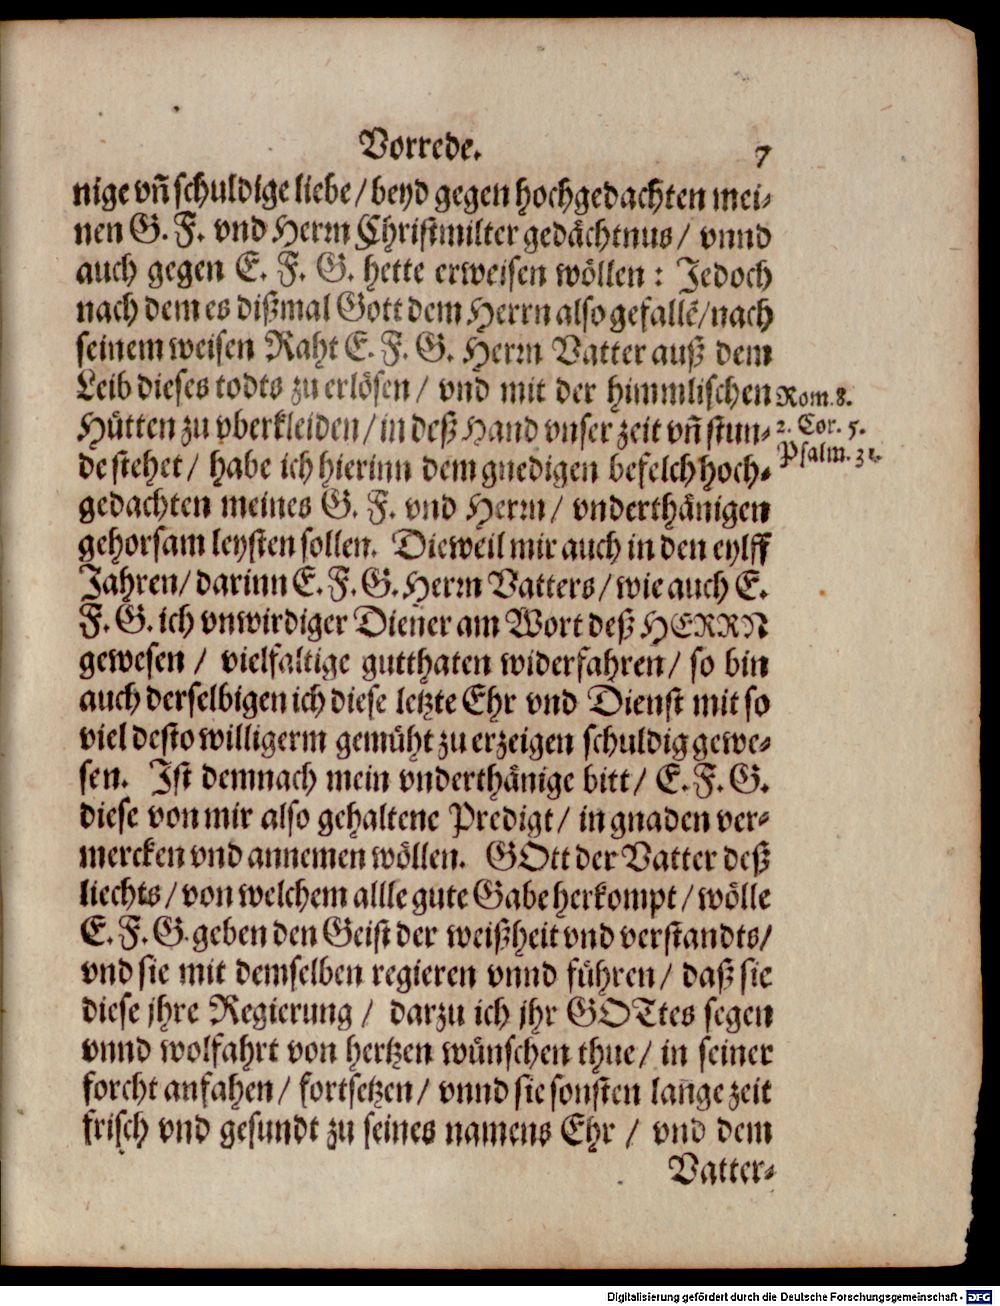 Vorrede. 7
nige vñ schuldige liebe / beyd gegen hochgedachten mei-
nen G. F. vnd Herrn Christmilter gedächtnus / vnnd
auch gegen E. F. G. hette erweisen wöllen : Jedoch
nach dem es dißmal Gott dem Herrn also gefallē / nach
seinem weisen Raht E. F. G. Herrn Vatter auß dem
Leib dieses todts zu erlösen / vnd mit der himmlischen
Rom. 8.
Hütten zu vberkleiden / in deß Hand vnser zeit vñ stun-
2. Cor. 5.
de stehet / habe ich hierinn dem gnedigen befelch hoch-
Psalm. 31.
gedachten meines G. F. vnd Herrn / vnderthänigen
gehorsam leysten sollen. Dieweil mir auch in den eylff
Jahren / darinn E. F. G. Herrn Vatters / wie auch E.
F. G. ich vnwirdiger Diener am Wort deß HERRN
gewesen / vielfaltige gutthaten widerfahren / so bin
auch derselbigen ich diese letzte Ehr vnd Dienst mit so
viel desto willigerm gemüht zu erzeigen schuldig gewe-
sen. Ist demnach mein vnderthänige bitt / E. F. G.
diese von mir also gehaltene Predigt / in gnaden ver-
mercken vnd annemen wöllen. GOtt der Vatter deß
liechts / von welchem allle gute Gabe herkompt / wölle
E. F. G. geben den Geist der weißheit vnd verstandts /
vnd sie mit demselben regieren vnnd führen / daß sie
diese jhre Regierung / darzu ich jhr GOTtes segen
vnnd wolfahrt von hertzen wünschen thue / in seiner
forcht anfahen / fortsetzen / vnnd sie sonsten lange zeit
frisch vnd gesundt zu seines namens Ehr / vnd dem
Vatter-
Digitalisierung gefördert durch die Deutsche Forschungsgemeinschaft - DFG